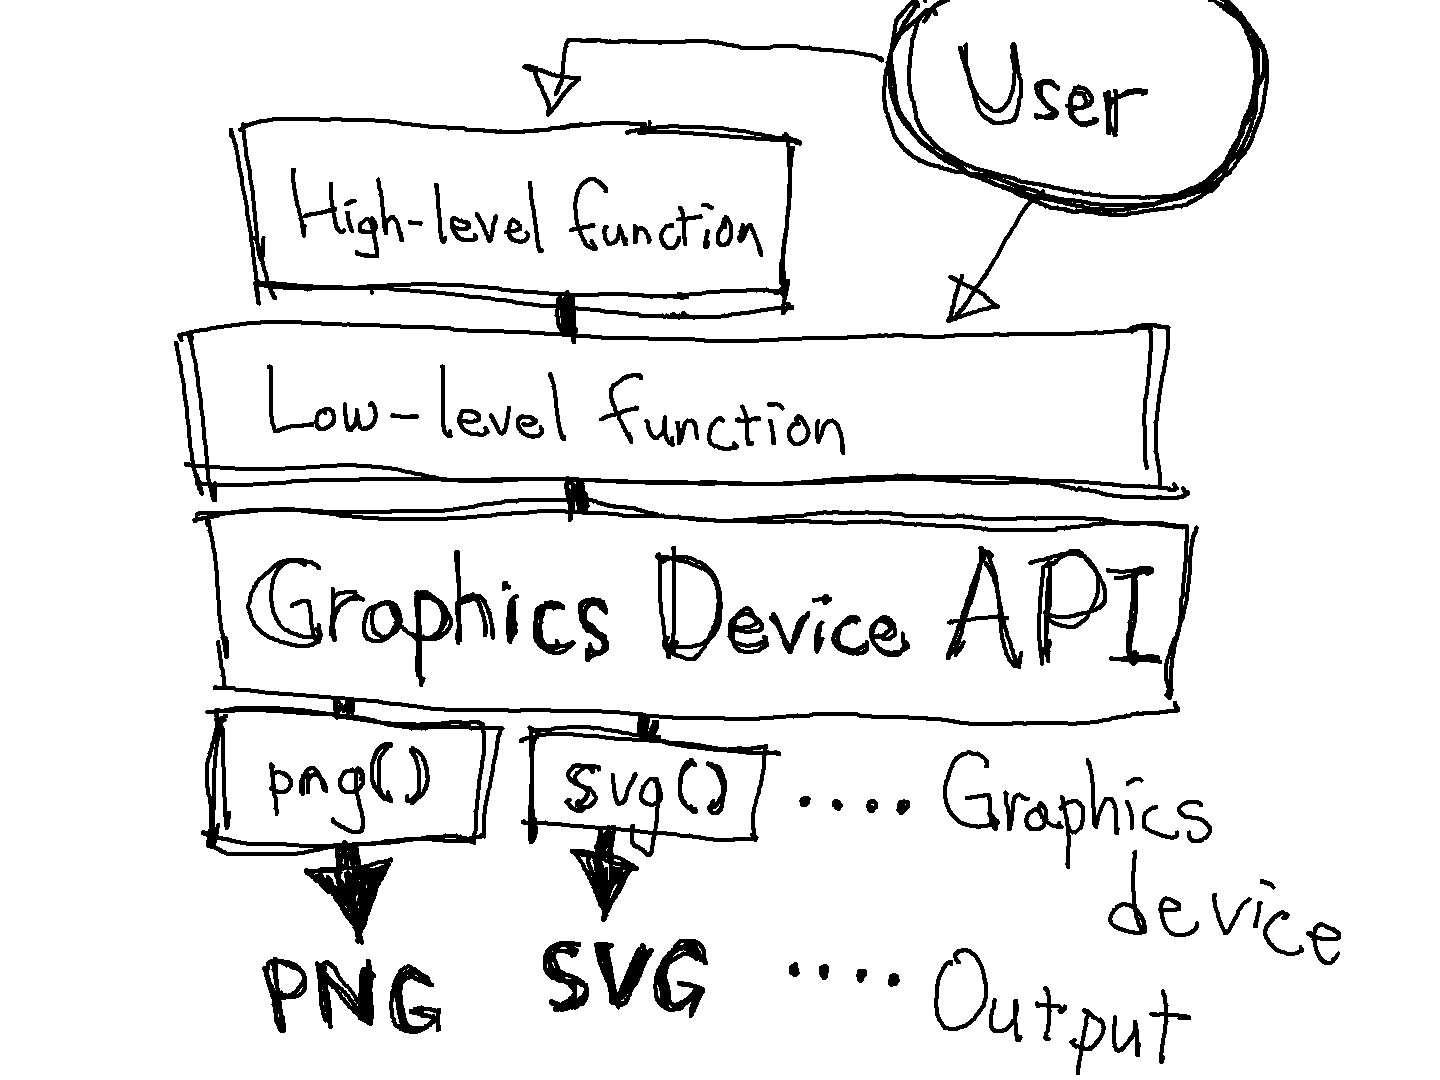 User
High-level function
Low-level function
Graphics Device API
png() svg() .... Graphics
device
PNG SVG .... Output